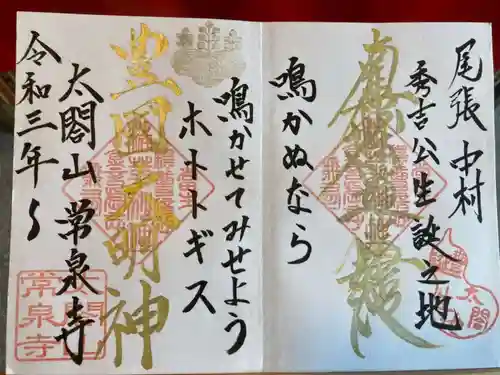 尾張中村
秀吉公生誕之地
南無妙法蓮華経
鳴かぬなら
鳴かせてみせよう
ホトトギス
豊国大明神
太閤山常泉寺
令和三年
太閤山
常泉寺